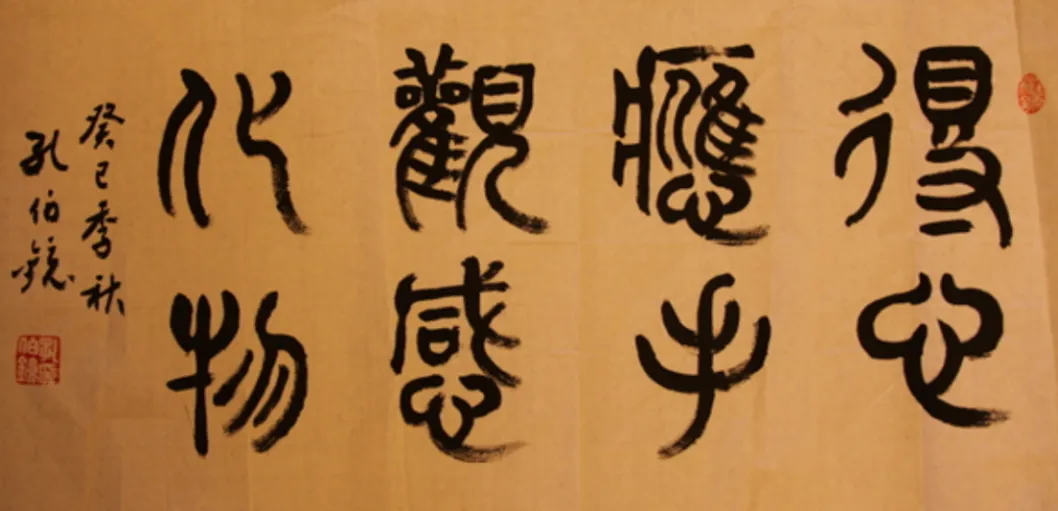 得心
應手
觀感
化物
癸巳季秋
孔伯鐿